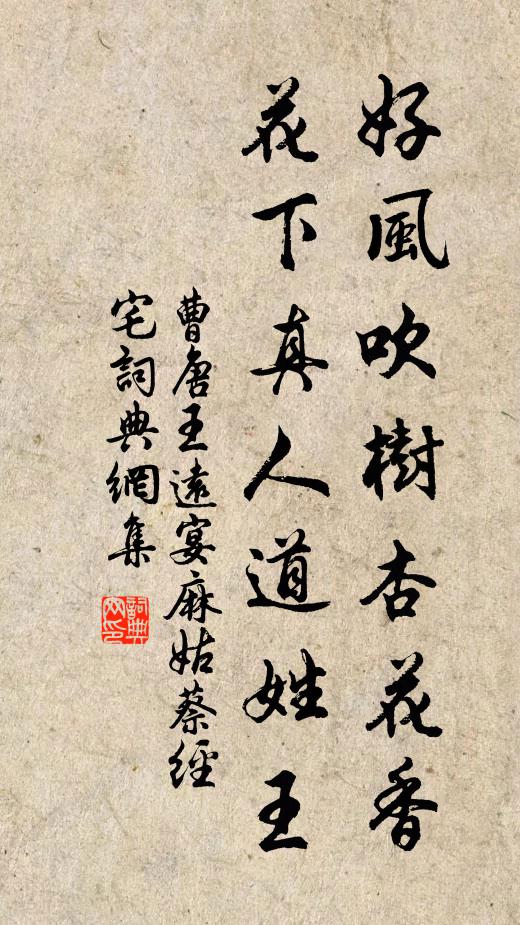 好風吹樹杏花香
花下真人道姓王
曹唐王遠宴麻姑蔡經
宅詞典網集
詞典
网印